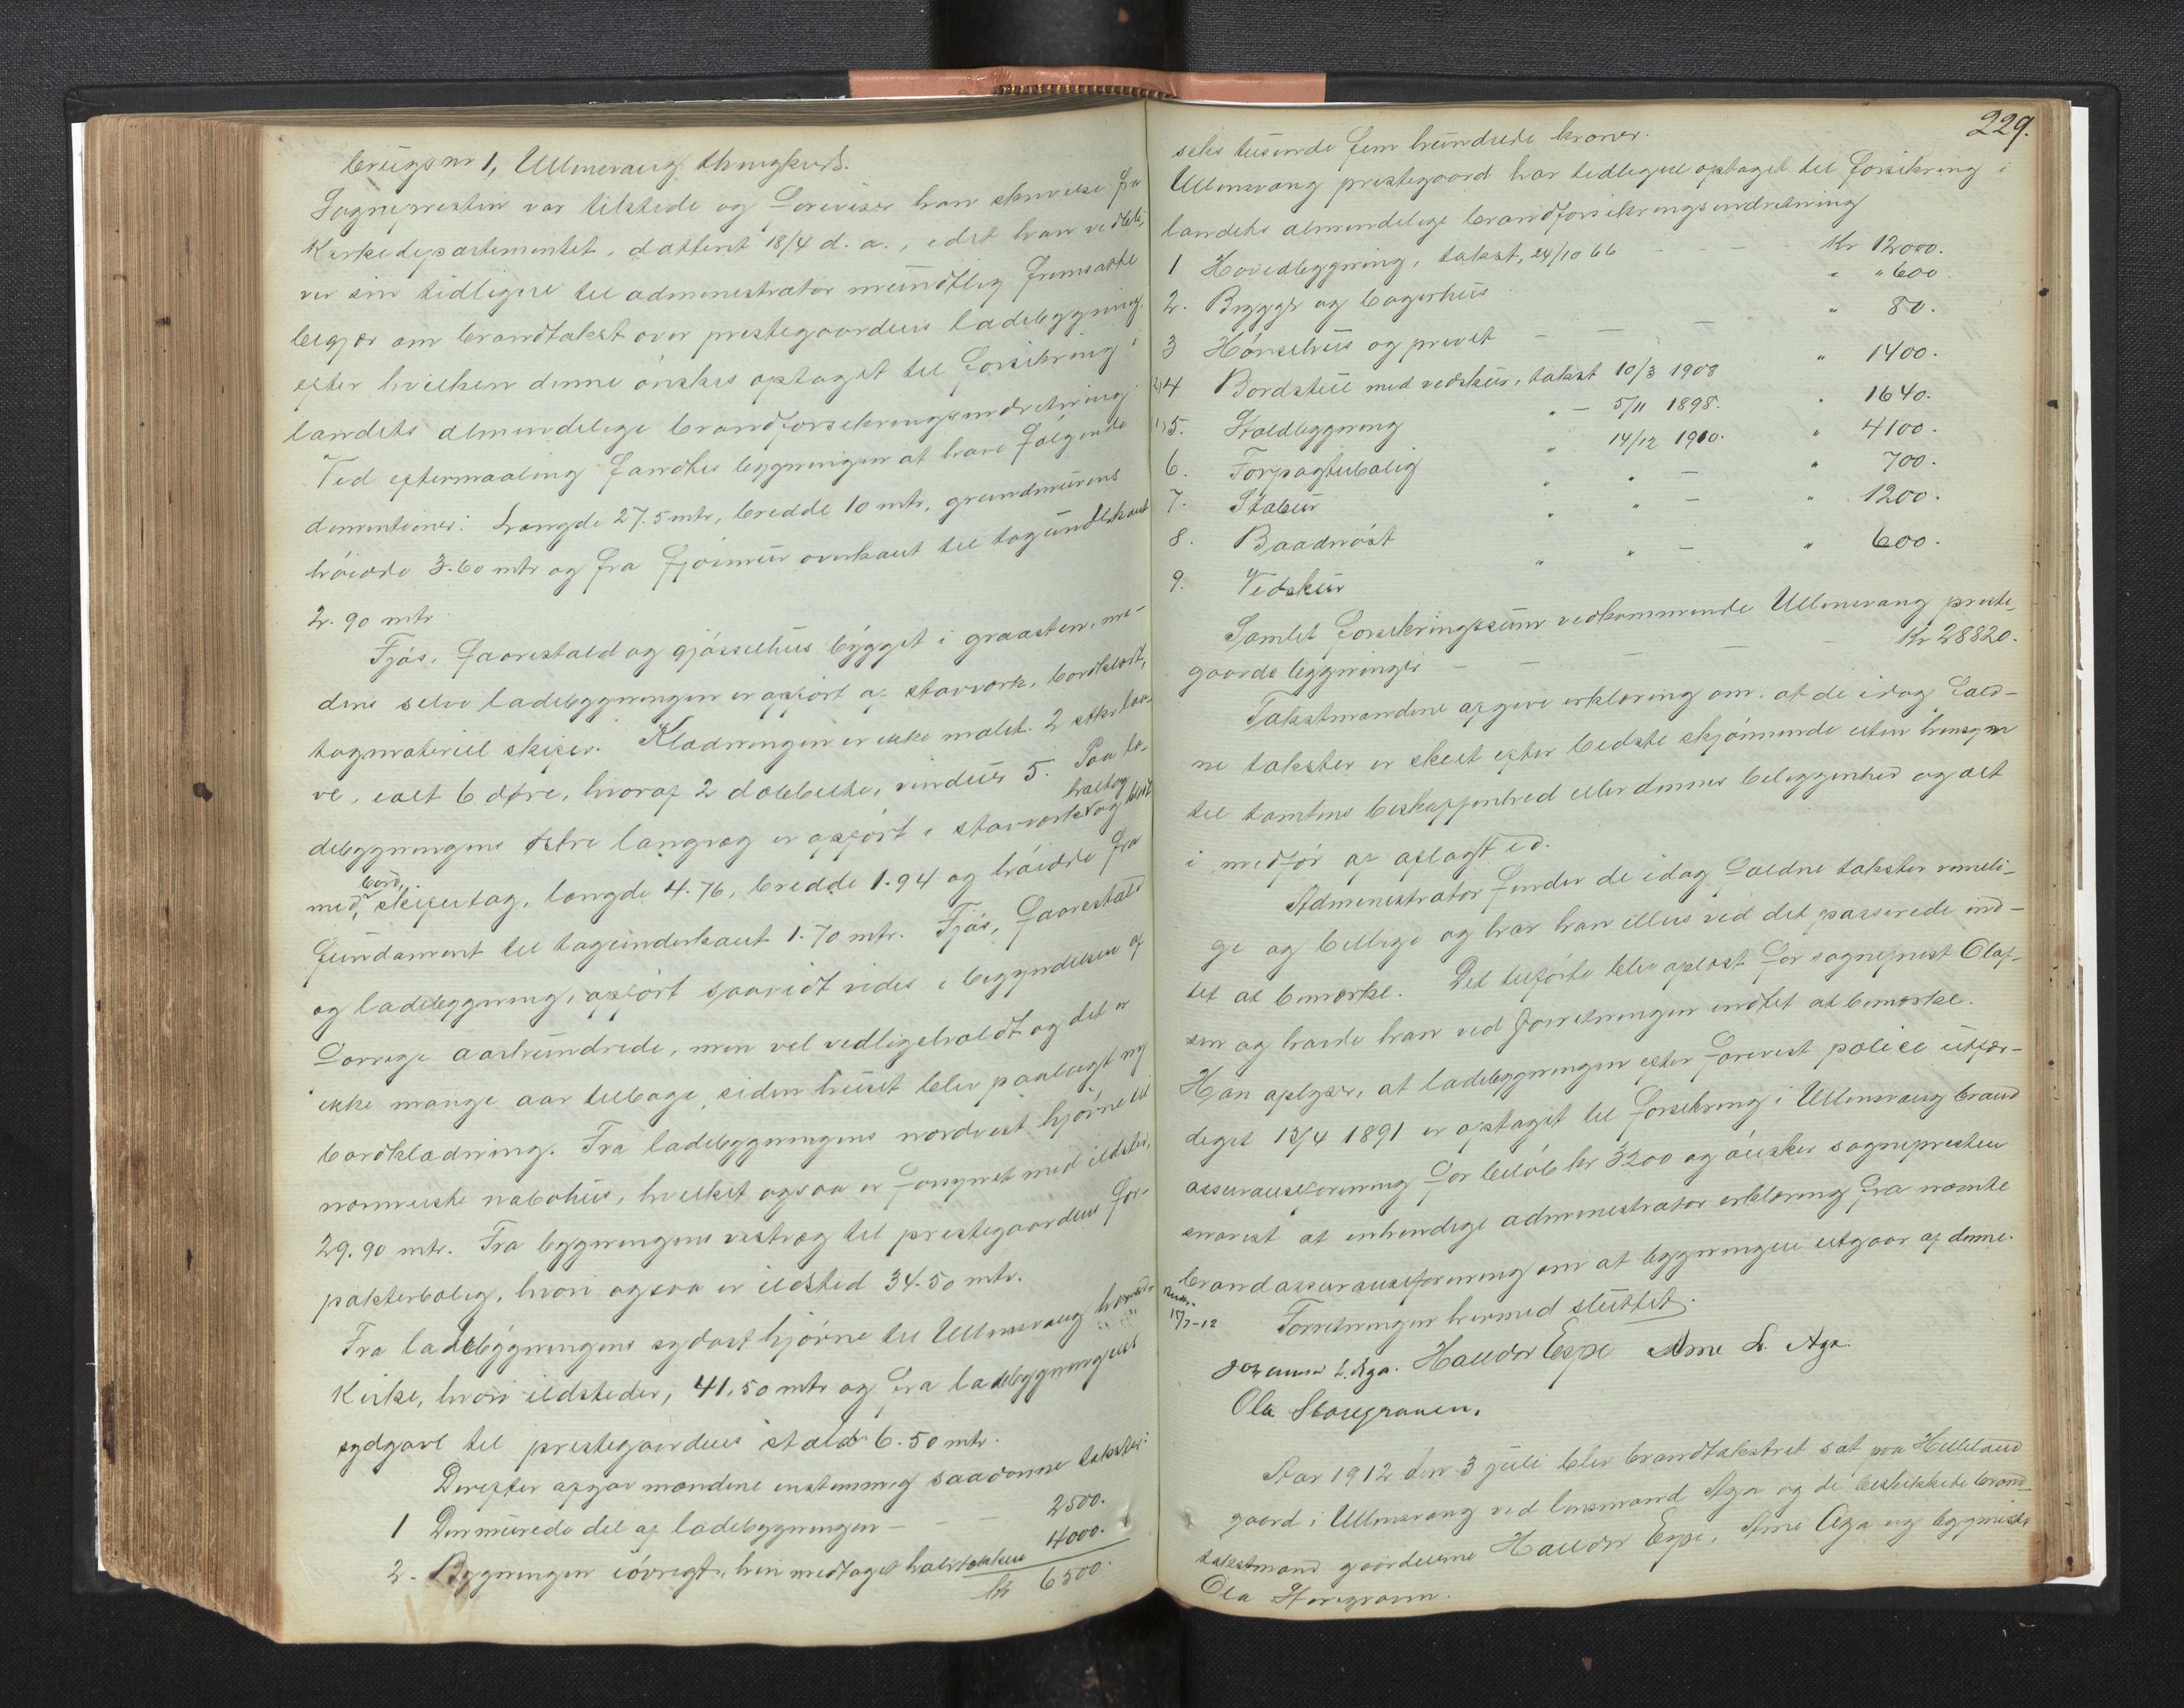 brugs nr 1, Ullensvang thinglag.
Sogneprsten var tilstede og foreviser han skrivelse fra
Kirkedepartementet, datteret 18/4 d. a., idet han vedbli-
ver sin tidligere til administrator mundtlig fremsatte
begjær om brandtakst over prestegaardens ladebygning
efter hvilken denne ønskes optaget til forsikring i
landets almindelige brandforsikringsindretning.
Ved eftermaaling fandtes bygningen at have følgende
dimentioner: Længde 27.5 mtr, bredde 10 mtr, grundmurens
høidde 3.60 mtr og fra fjøsmur overkant til tagunderkant
2.90 mtr
Fjøs, faarestald og gjødselhus bygget i graasten, me-
dens selve ladebygningen er opført af stavverk, bordklædt,
tagmateriel skifer. Klædningen er ikke malet. 2 stkr laa-
ve, ialt 6 døre, hvoraf 2 dobbelte, vinduer 5. Paa la-
debygningens østre langvæg er opført i stavverk halvtag og klædt
med bord, skifertag, længde 4.76, bredde 1.94 og høidde fra
fundament til tagunderkant 1.70 mtr. Fjøs, faarestald
og ladebygning, opført saavidt vides i begyndelsen af
forrige aarhundrede, men vel vedligeholdt og det er
ikke mange aar tilbage siden huset blev paalagt ny
bordklædning. Fra ladebygningens nordvest hjørne til
nærmeste nabohus, hvilket ogsaa er forsynet med ildsted,
29.90 mtr. Fra bygningens vestvæg til prestegaardens for-
pakterbolig, hvori ogsaa er ildsted 34.50 mtr.
Fra ladebygningens sydost hjørne til Ullensvang hoved-
Kirke, hvori ildsteder, 41,50 mtr og fra ladebygningens
sydgavl til prestegaardens stald 6.50 mtr.
Derefter afgav mændene enstemmig saadanne takster:
1 Den murede del af ladebygningen - - - 2500.
2. Bygningen iøvrigt, heri medtaget halvtakken 4000.
kr 6500.
229.
seks tusinde fem hundrede kroner.
Ullensvang prestegaard har tidligere optaget til forsikring i
landets almindelige brandforsikringsindretning
1 Hovedbygning, takst, 24/10 66 - - - - Kr 12000.
2. Brygge og bagerhus " " 600
3 Hønsehus og privet - - - " 80.
2) 4 Bordstue med vedskur, takst 10/3 1908 " 1400.
1) 5. Staldbygning " - 5/11 1898. " 1640.
6. Forpagterbolig " 14/12 1910. " 4100.
7. Stabur " " - " 700.
8. Baadnøst " " - " 1200.
9. Vedskur " " - " 600.
Samlet forsikringssum vedkommende Ullensvang preste-
gaards bygninger - - - - - Kr 28820.
Takstmændene afgive erklæring om, at de idag fald-
ne takster er skeet efter bedste skjønnende uten hensyn
til tomtens beskaffenhed eller dennes beliggenhed og alt
i medfør af aflagt ed.
Administrator finder de idag faldne takster rimeli-
ge og billige og har han ellers ved det passerede ind-
tet at bemærke. Det tilførte blev oplæst for sogneprest Olaf-
sen og havde han ved forretningen indtet at bemærke.
Han oplyser, at ladebygningen efter forevist police utfær-
diget 13/4 1891 er optaget til forsikring i Ullensvang brand
assuranseforening for beløb kr 3200 og ønsker sognepresten
snarest at inhendige administrator erklæring fra nævnte
brandassuranseforening om at bygningen utgaar af denne.
Forretningen hermed sluttet.
15/7-12
Johannes L. Aga. Halldor Espe Arne L. Aga.
Ola Storegraven.
Aar 1912 den 3 juli blev brandtakstret sat paa Helleland
gaard i Ullensvang ved lensmand Aga og de beskikkede brand-
takstmænd gaardeierne Halldor Espe, Arne Aga og bygmester
Ola Storegraven.